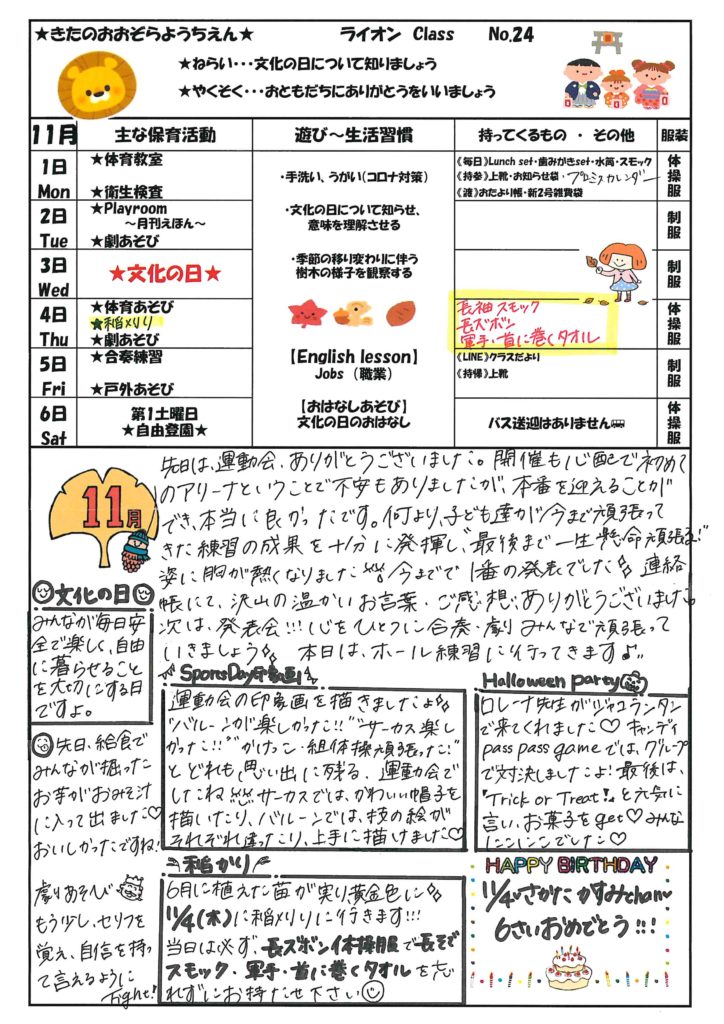 ★きたのおおぞらようちえん★ ライオン Class No.24
★ねらい･･･文化の日について知りましょう
★やくそく･･･おともだちにありがとうをいいましょう
11月 主な保育活動 遊び～生活習慣 持ってくるもの ・ その他 服装
1日 Mon ★体育教室
★衛生検査
《毎日》Lunch set・歯みがきset・水筒・スモック
《持参》上靴・お知らせ袋・プロミスカレンダー
《渡》おたより帳・新2号雑貨袋
体操服
2日 Tue ★Playroom
～月刊えほん～
★劇あそび
制服
3日 Wed ★文化の日★
制服
4日 Thu ★体育あそび
★稲刈り
★劇あそび
長袖スモック
長ズボン
軍手・首に巻くタオル
体操服
5日 Fri ★合奏練習
★戸外あそび
《LINE》クラスだより
《持帰》上靴
制服
6日 Sat 第1土曜日
★自由登園★
バス送迎はありません
体操服
・手洗い、うがい(コロナ対策)
・文化の日について知らせ、
意味を理解させる
・季節の移り変わりに伴う
樹木の様子を観察する
【English lesson】
Jobs（職業）
【おはなしあそび】
文化の日のおはなし
11月
先日は、運動会、ありがとうございました。開催も心配で初めて
のアリーナということで不安もありましたが、本番を迎えることが
でき、本当に良かったです。何より、子ども達が今まで頑張って
きた練習の成果を十分に発揮し、最後まで一生懸命頑張る
姿に胸が熱くなりました 今までで1番の発表でした 連絡
帳にて、沢山の温かいお言葉・ご感想、ありがとうございました。
次は、発表会!!! 心をひとつに合奏・劇みんなで頑張って
いきましょう 本日は、ホール練習に行ってきます♪
文化の日
みんなが毎日安
全で楽しく、自由
に暮らせること
を大切にする日
ですよ。
先日、給食で
みんなが掘った
お芋がおみそ汁
に入って出ました♡
おいしかったですね!
劇あそび
もう少し、セリフを
覚え、自信を持っ
て言えるように
Fight!
SportsDay印象画
運動会の印象画を描きましたよ
"バルーンが楽しかった!!""サーカス楽し
かった!!""かけっこ・組体操頑張った!"
と どれも思い出に残る、運動会で
したね サーカスでは、かわいい帽子を
描いたり、バルーンでは、技の絵が
それぞれ違ったり、上手に描けました♡
Halloween party
ロレーナ先生がジャコランタン
で来てくれました♡ キャンディ
pass pass gameでは、グループ
で対決しましたよ! 最後は、
"Trick or Treat!"と元気に
言い、お菓子をget♡みんな
にこにこでした♡
稲かり
6月に植えた苗が実り、黄金色に
11/4(木)に稲刈りに行きます!!!
当日は必ず、長ズボン体操服で長そで
スモック・軍手・首に巻くタオルを忘
れずにお持たせ下さい
HAPPY BIRTHDAY
11/4 さかた かすみchan
6さいおめでとう!!!